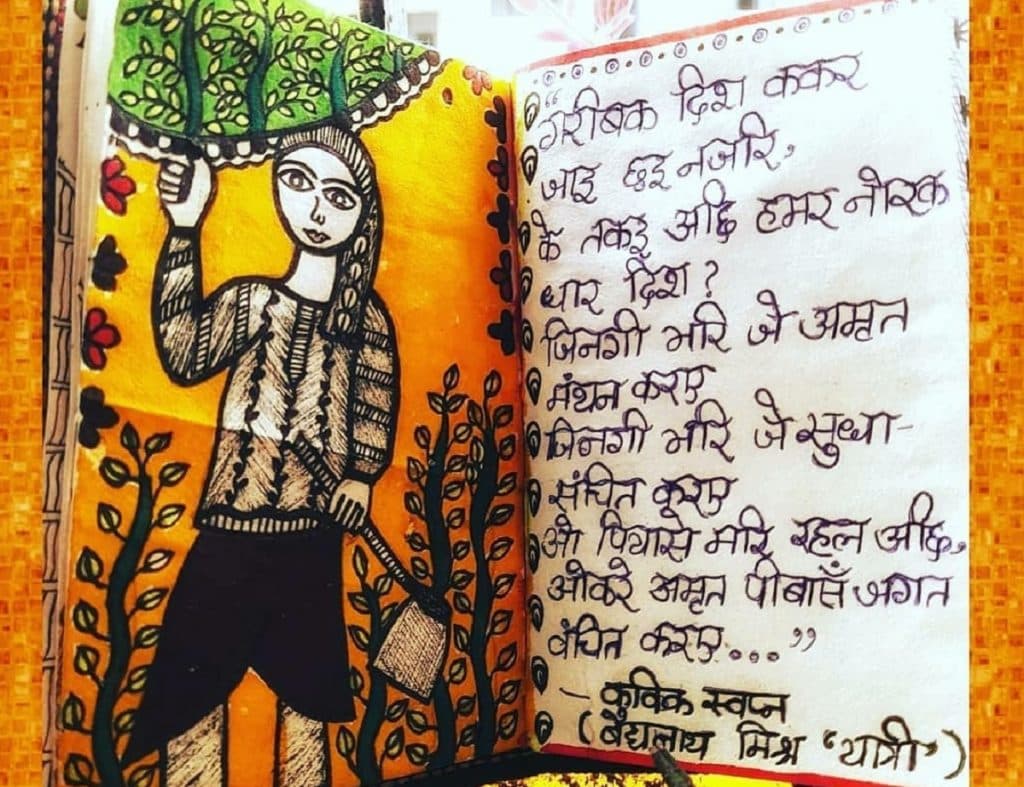 “गरीबक दिश ककर
जाइ छइ नजरि,
के तकइ अछि हमर नोरक
धार दिश ?
जिनगी भरि जे अमृत
मंथन करए
जिनगी भरि जे सुधा-
संचित करए
ओ पियासे मरि रहल अछि,
ओकरे अमृत पीबासँ जगत
वंचित करए...”
- कविक स्वप्न
(बैद्यनाथ मिश्र ‘यात्री’)